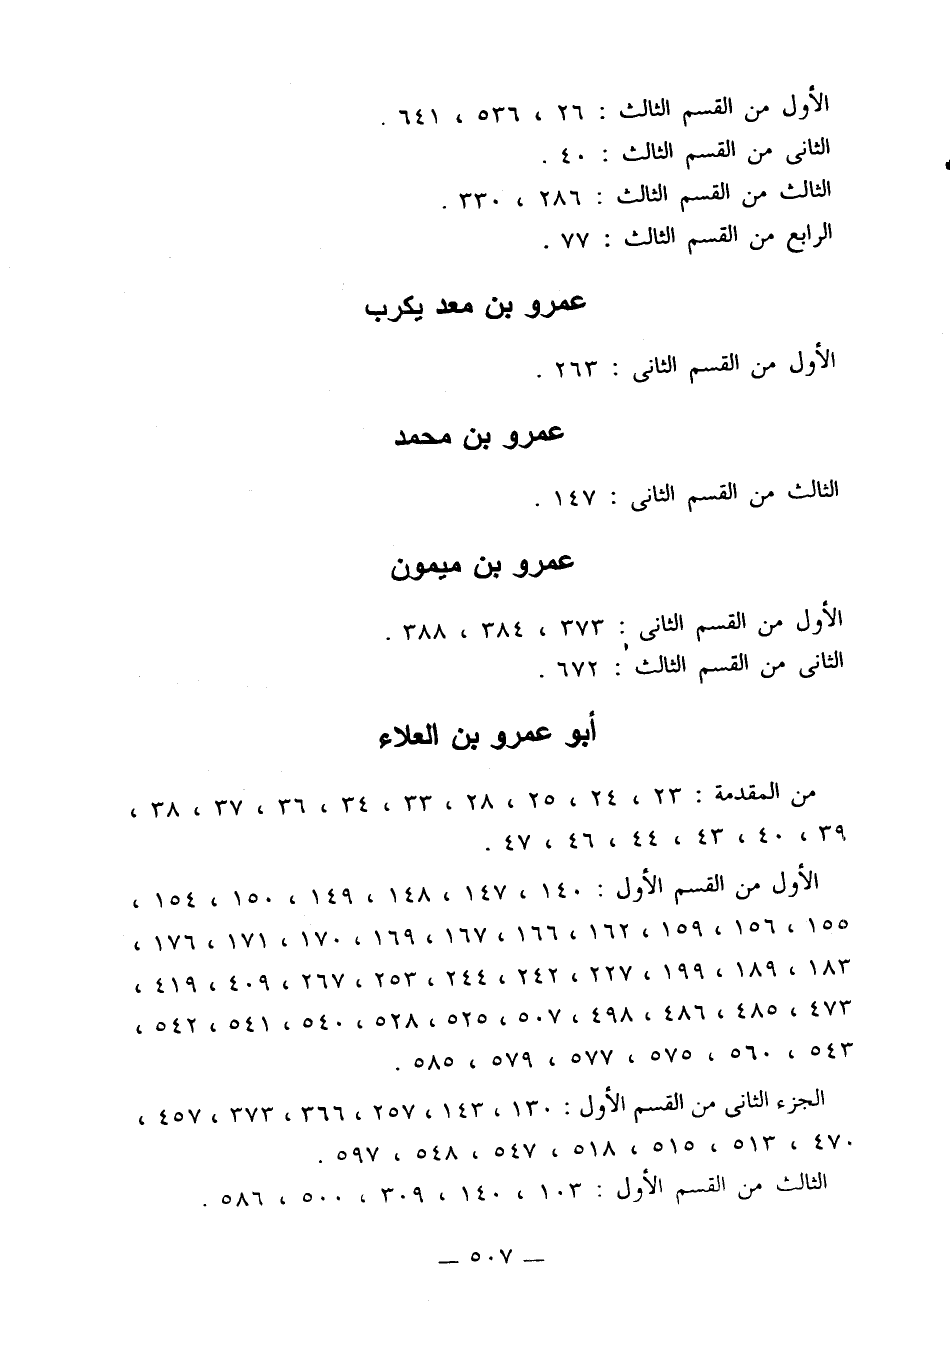 الأول من القسم الثالث : ٢٦ ، ٥٣٦ ، ٦٤١ .
الثانى من القسم الثالث : ٤٠ .
الثالث من القسم الثالث : ٢٨٦ ، ٣٣٠ .
الرابع من القسم الثالث : ٧٧ .
عمرو بن معد يكرب
الأول من القسم الثانى : ٢٦٣ .
عمرو بن محمد
الثالث من القسم الثانى : ١٤٧ .
عمرو بن ميمون
الأول من القسم الثانى : ٣٧٣ ، ٣٨٤ ، ٣٨٨ .
الثانى من القسم الثالث : ٦٧٢ .
أبو عمرو بن العلاء
من المقدمة : ٢٣ ، ٢٤ ، ٢٥ ، ٢٨ ، ٣٣ ، ٣٤ ، ٣٦ ، ٣٧ ، ٣٨ ،
٣٩ ، ٤٠ ، ٤٣ ، ٤٤ ، ٤٦ ، ٤٧ .
الأول من القسم الأول : ١٤٠ ، ١٤٧ ، ١٤٨ ، ١٤٩ ، ١٥٠ ، ١٥٤ ،
١٥٥ ، ١٥٦ ، ١٥٩ ، ١٦٢ ، ١٦٦ ، ١٦٧ ، ١٦٩ ، ١٧٠ ، ١٧١ ، ١٧٦ ،
١٨٣ ، ١٨٩ ، ١٩٩ ، ٢٢٧ ، ٢٤٢ ، ٢٤٤ ، ٢٥٣ ، ٢٦٧ ، ٤٠٩ ، ٤١٩ ،
٤٧٣ ، ٤٨٥ ، ٤٨٦ ، ٤٩٨ ، ٥٠٧ ، ٥٢٥ ، ٥٢٨ ، ٥٤٠ ، ٥٤١ ، ٥٤٢ ،
٥٤٣ ، ٥٦٠ ، ٥٧٥ ، ٥٧٧ ، ٥٧٩ ، ٥٨٥ .
الجزء الثانى من القسم الأول : ١٣٠ ، ١٤٣ ، ٢٥٧ ، ٣٦٦ ، ٣٧٣ ، ٤٥٧ ،
٤٧٠ ، ٥١٣ ، ٥١٥ ، ٥١٨ ، ٥٤٧ ، ٥٤٨ ، ٥٩٧ .
الثالث من القسم الأول : ١٠٣ ، ١٤٠ ، ٣٠٩ ، ٥٠٠ ، ٥٨٦ .
— ٥٠٧ —